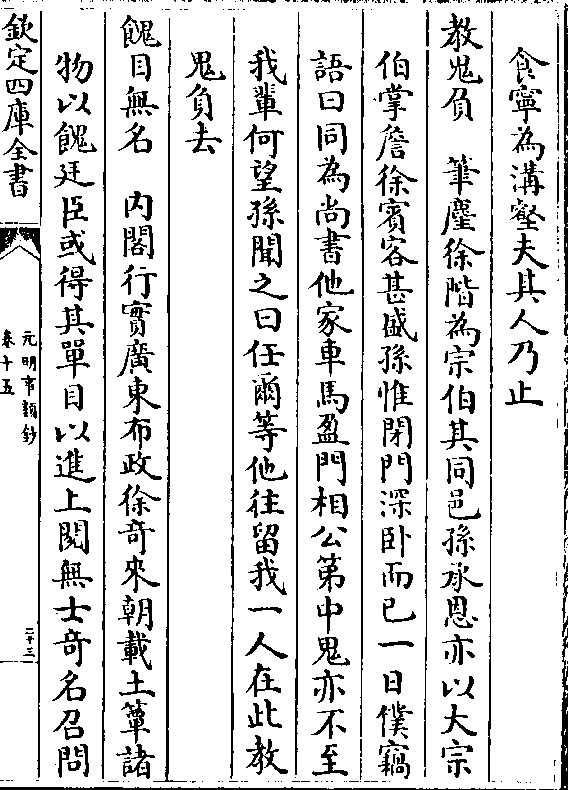 食寧為溝壑夫其人乃止
教鬼負　筆麈徐階為宗伯其同邑孫承恩亦以大宗
伯掌詹徐賓客甚盛孫惟閉門深卧而已一日僕竊
語曰同為尚書他家車馬盈門相公第中鬼亦不至
我輩何望孫聞之曰任爾等他往留我一人在此教
鬼負去
餽目無名　内閣行實廣東布政徐奇來朝載土簟諸
物以餽廷臣或得其單目以進上閱無士奇名召問
欽定四庫全書
元明事類鈔
卷十五
二十三